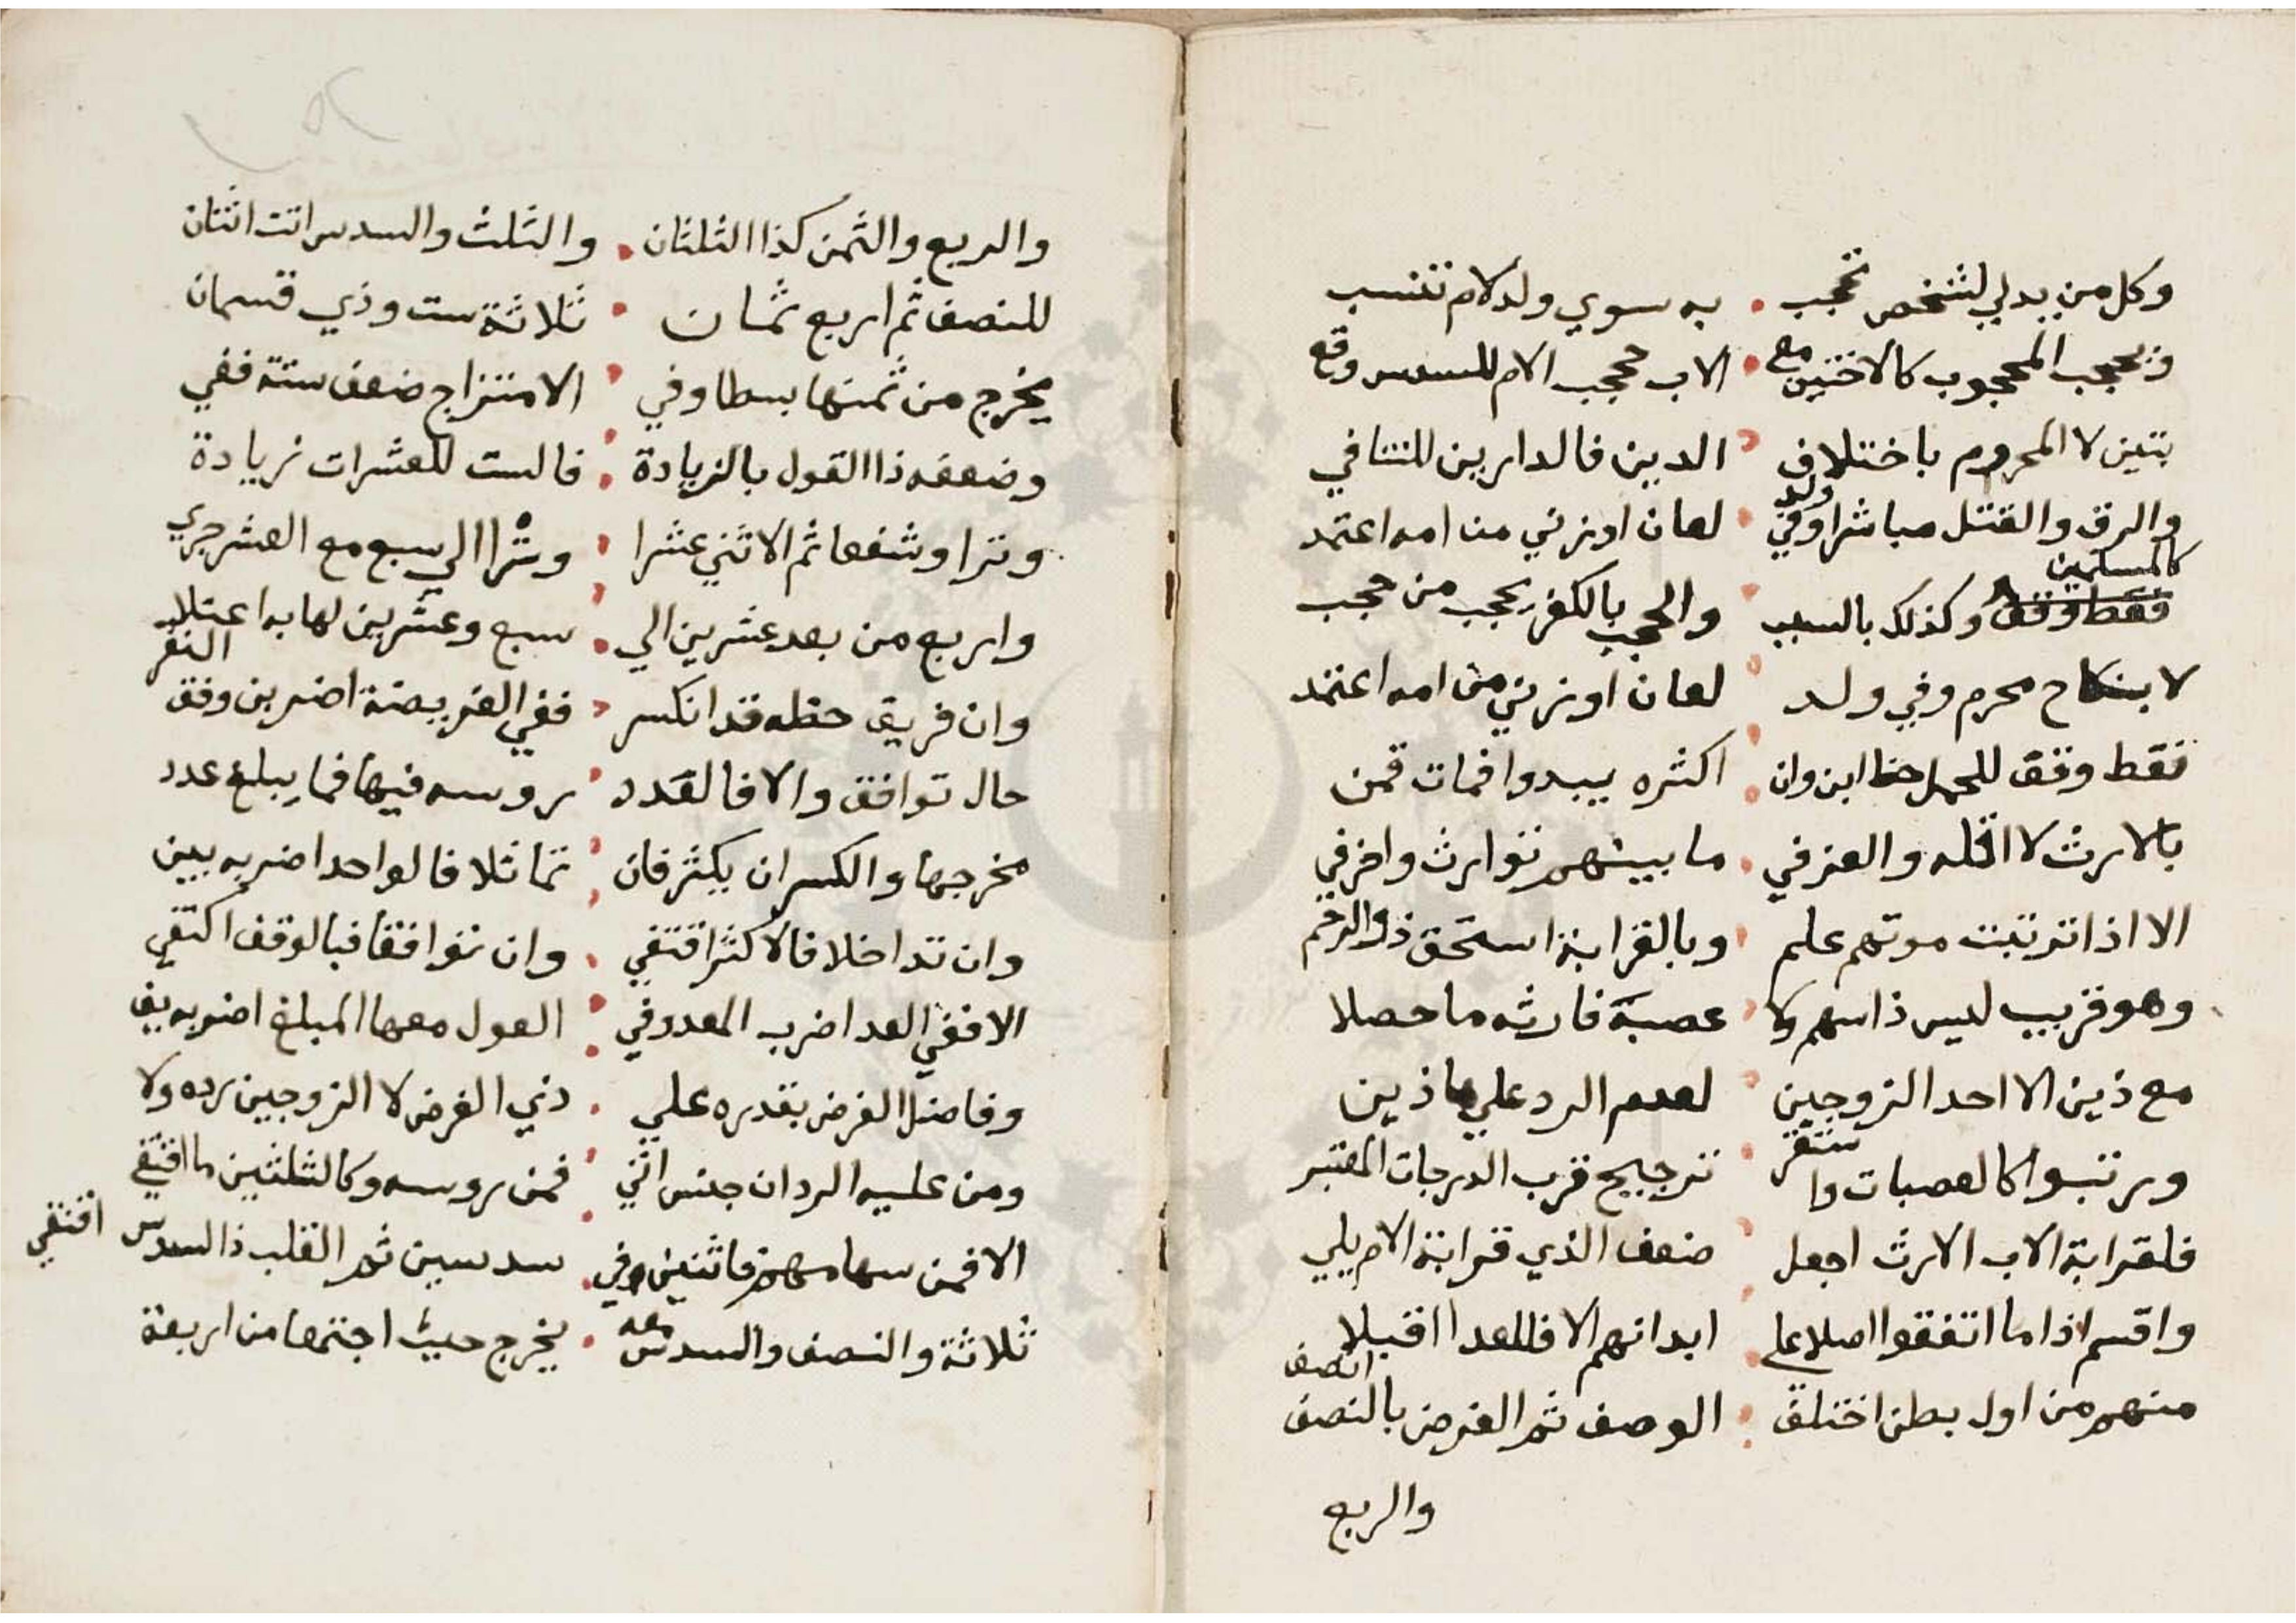 وكل من يدلي لشخص تحجب به سوي ولد لام تنتسب
وتحجب المحجوب كالاختين مع الاب حجب الام للسدس وقع
بتين لا المحروم باختلاف الدين فالدارين للتنافي
والرق والقتل مباشرا وفي ولد لعان او زني من امه اعتمد
كالمسلمين
فقط وقف وكذلك بالسبب والحجب بالكفر يحجب من حجب
لا بنكاح محرم وفي ولد لعان او زني من امه اعتمد
فقط وقف للحمل حظ ابن وان اكثره يبدوا فمات فمن
بالارث لا اقله والغرقي ما بينهم توارث واخرفي
الا اذا ترتبت موتهم علم وبالقرابة استحق ذو الرحم
وهو قريب ليس ذا سهم ولا عصبة فارثه ما حصلا
مع ذين الا احد الزوجين لعدم الرد علي ما ذين
ورتبوا كالعصبات وا ستقر ترجيح قرب الدرجات المعتبر
فلقرابة الاب الارث اجعل ضعف الذي قرابة الام يلي
واقسم اذا ما اتفقوا اصلا علي ابدانهم الا فللعدا اقبلا
منهم من اول بطن اختلف الوصف ثم الفرض بالنصف اتصف
والربع
والربع والثمن كذا الثلثان والثلث والسدس اتت اثنان
للنصف ثم اربع ثمان ثلاثة ست وذي قسمان
يخرج من ثمنها بسطا وفي الامتزاج ضعف ستة ففي
وضعفه ذا القول بالزيادة فالست للعشرات زيادة
وترا وشفعا ثم الاثني عشرا وترا الي سبع مع العشر جري
واربع من بعد عشرين الي سبع وعشرين لها به اعتلا
وان فريق حظه قد انكسر ففي الفريضة اضربن وفق النفر
حال توافق والا فالعدد روسه فيها فما يبلغ عدد
مخرجها والكسر ان يكثر فان تماثلا فالواحد اضربه يبن
وان تداخلا فالاكثر اقتفي وان توافقا فبالوقف اكتفي
الا ففي العد اضرب المعدوفي العول معها المبلغ اضربه يف
وفاضل الفرض بقدره علي ذي الفرض لا الزوجين رده ولا
ومن عليه الرد ان جنس اثني فمن روسه وكالثلثين ما اقتفي
الا فمن سهامهم فاثنين وفي سدسين ثم القلب ذا السدس اقتفي
ثلاثة والنصف والسدس معه يخرج حيث اجتمعا من اربعة